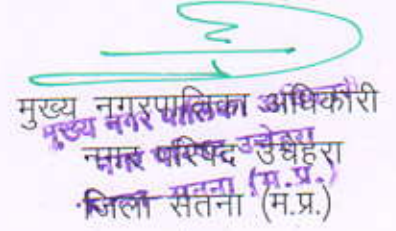 मुख्य नगरपालिका अधिकारी
मुख्य नगर पालिका अधिकारी
नगर परिषद उचेहरा
नगर परिषद उचेहरा
जिला सतना (म.प्र.)
जिला सतना (म.प्र.)